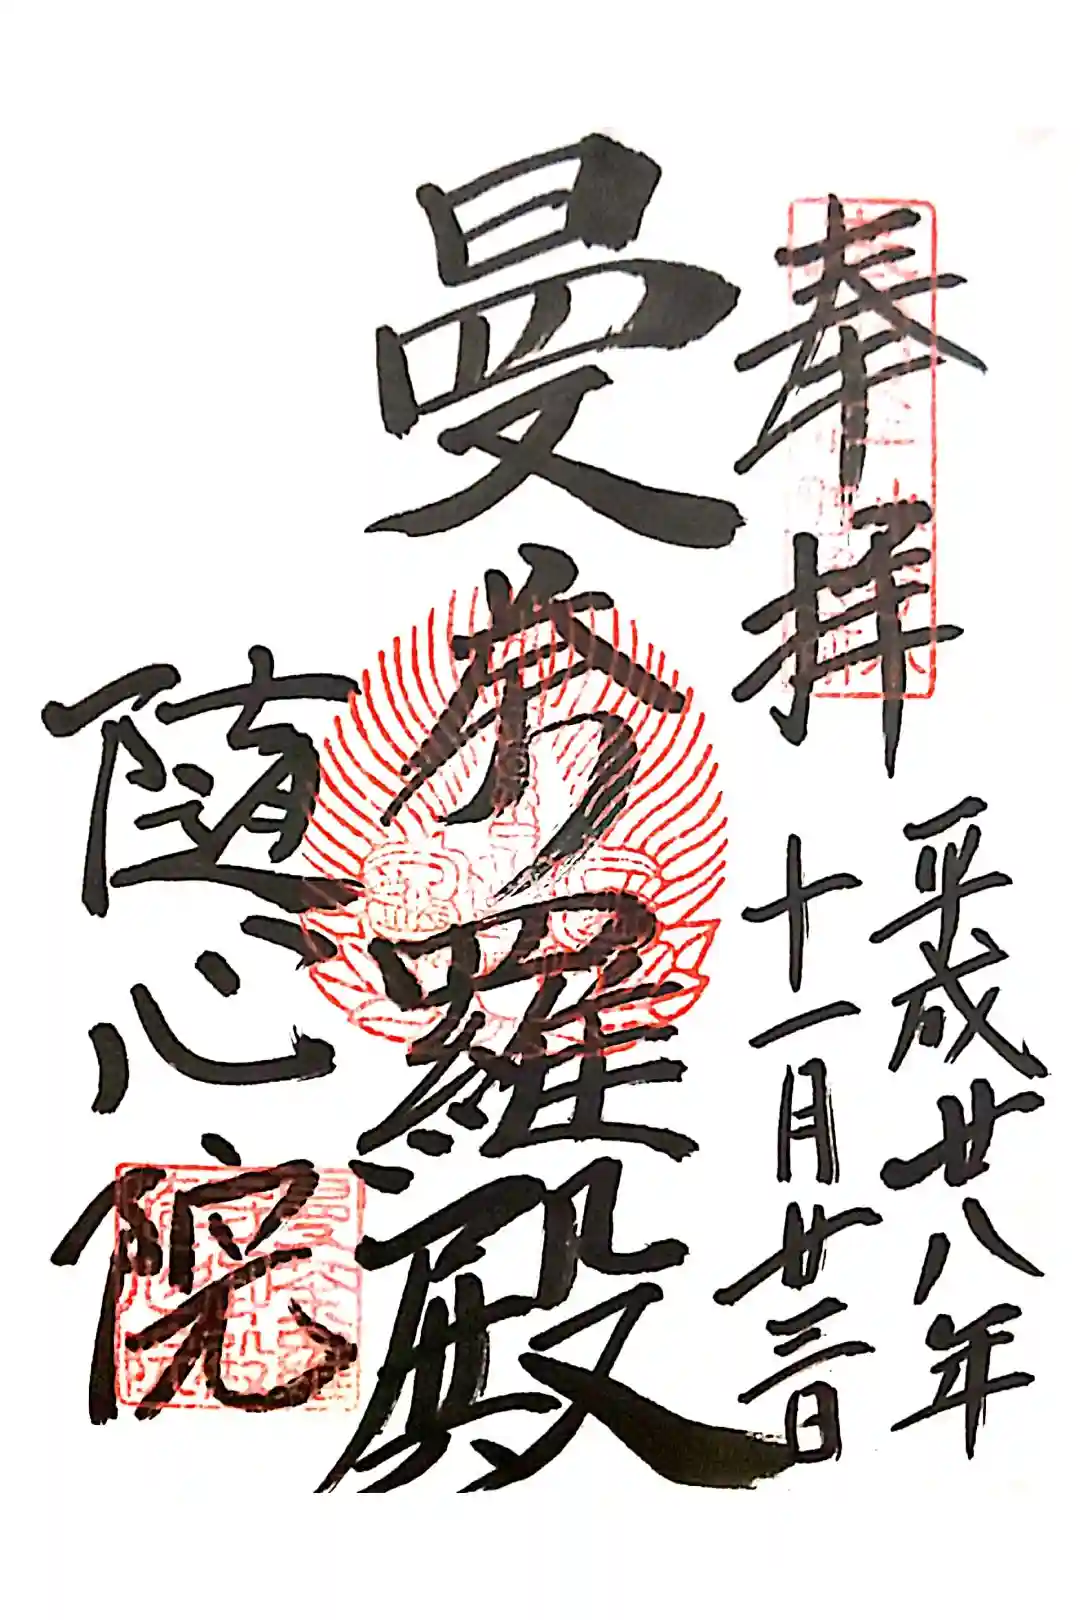 奉拝
平成廿八年
十一月廿三日
曼荼羅殿
随心院